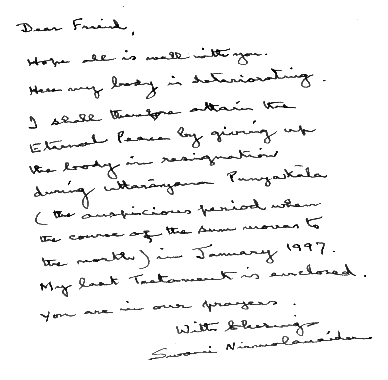 Dear Friend,
Hope all is well with you.
Here my body is deteriorating.
I shall therefore attain the
Eternal Peace by giving up
the body in resignation
during uttarāyana Punyakāla
(the auspicious period when
the course of the sun moves to
the north) in January 1997.
My last Testament is enclosed.
You are in our prayers.
With blessings
Swami Nirmalananda